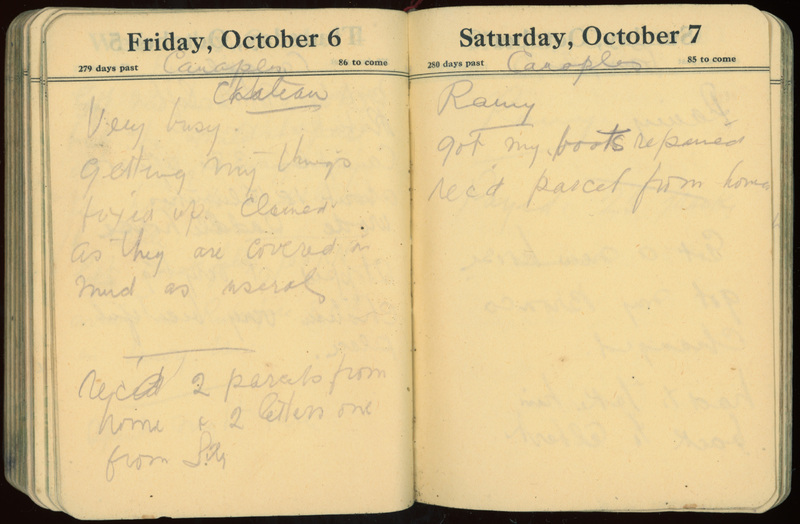 Friday, October 6
279 days past
86 to come
Canaples
Chateau
Very busy.
getting my things
fixed up. Cleaned
as they are covered in
mud as useral
rec'd 2 parcels from
home & 2 letters one
from
Saturday, October 7
280 days past
85 to come
Canaples
Rainy
got my boots repaired
rec'd parcel from home